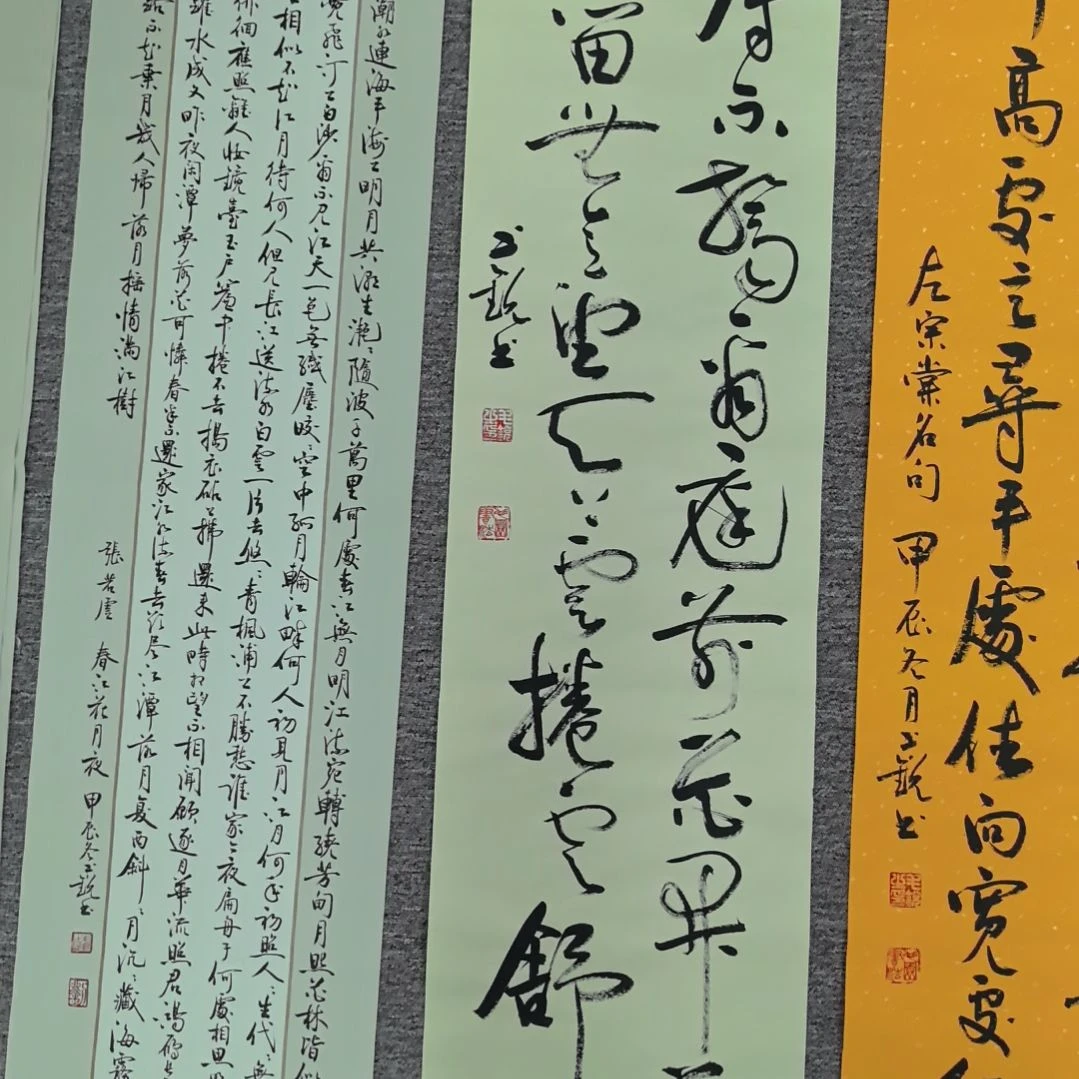 高處立尋平處住向寬處
左宗棠名句 甲辰冬月王銳书
辱不驚看庭前花開
留無意望天上雲捲雲舒
王銳书
潮水連海平海上明月共潮生灩、隨波千萬里何處春江無月明江流宛轉繞芳甸月照花林皆似
飛汀上白沙看不見江天一色無纖塵皎、空中孤月輪江畔何人初見月江月何年初照人、生代、無
相似不知江月待何人但見長江送流水白雲一片去悠、青楓浦上不勝愁誰家今夜扁舟子何處相思
徘徊應照離人妝鏡臺玉戶簾中捲不去搗衣砧上拂還來此時相望不相聞願逐月華流照君鴻雁長
躍水成文昨夜閒潭夢落花可憐春半不還家江水流春去欲盡江潭落月復西斜、月沉、藏海霧
路不知乘月幾人歸落月搖情滿江樹
張若虛 春江花月夜 甲辰冬王銳书